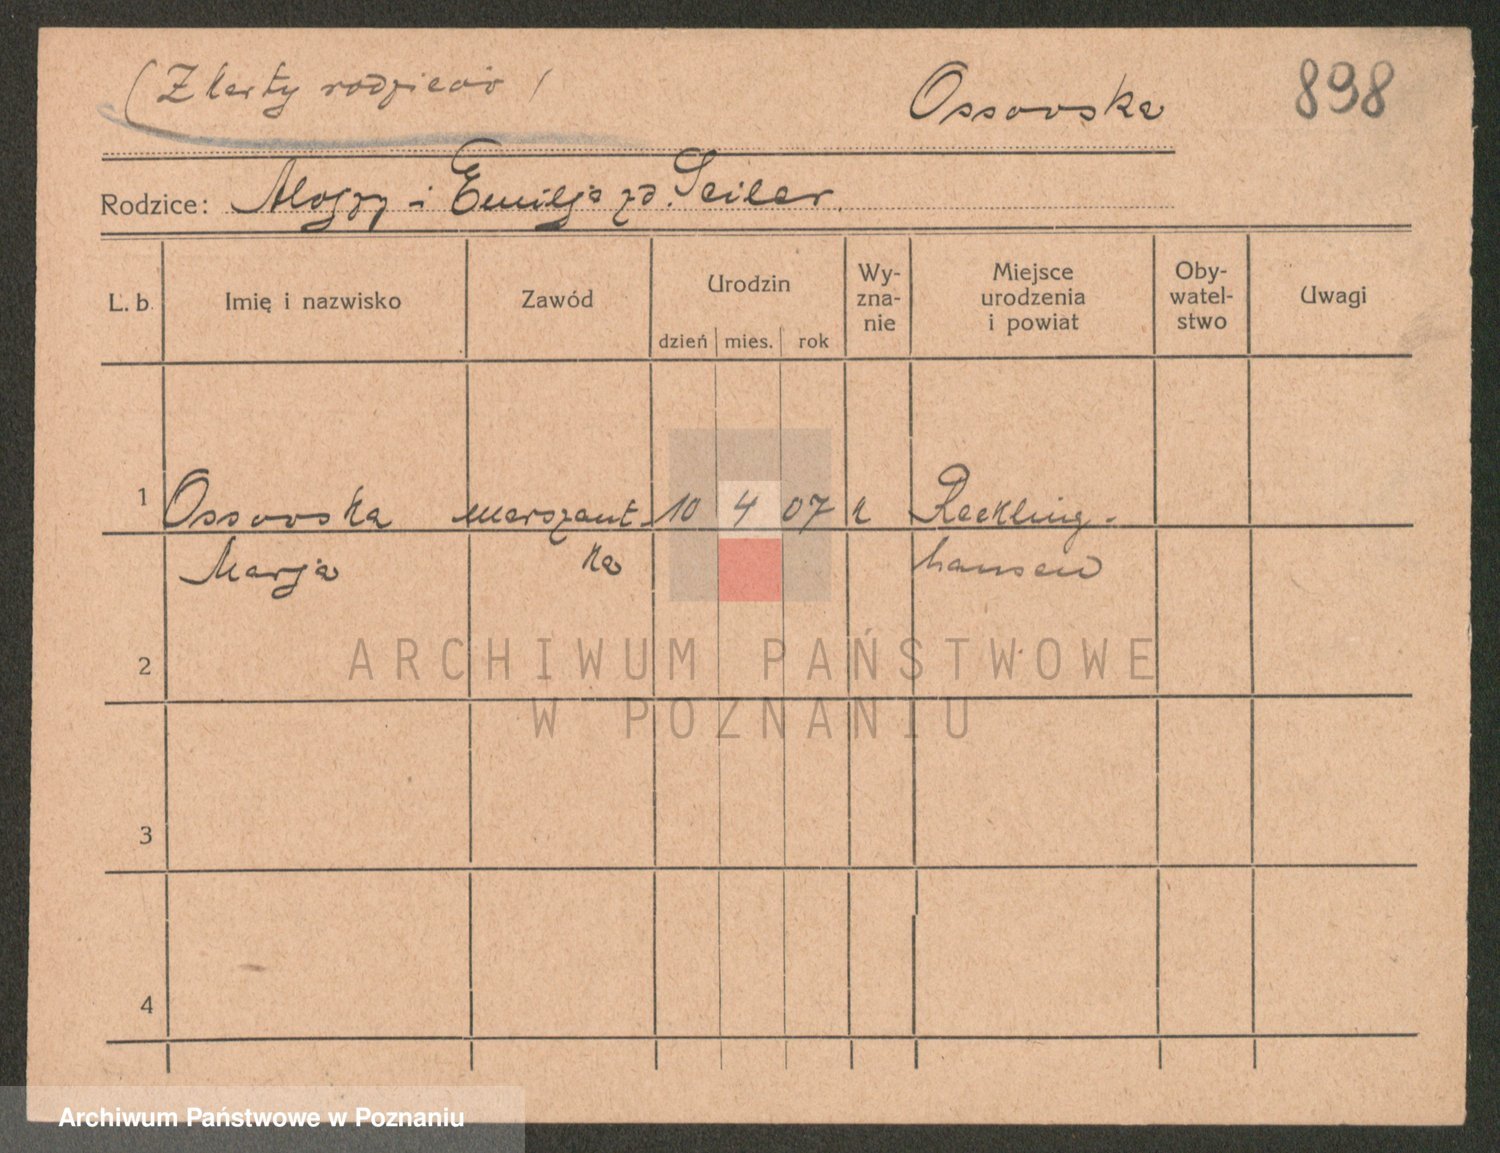 (Z karty rodziców)
Ossowska
898
Rodzice: Alojzy i Emilja zd. Seiler.
L. b. Imię i nazwisko Zawód Urodzin dzień mies. rok Wy-zna-nie Miejsce urodzenia i powiat Oby-watel-stwo Uwagi
1 Ossowska marszant- 10 4 07 k Reckling-
Marja ka hausen
2
ARCHIWUM PAŃSTWOWE
W POZNANIU
3
4
Archiwum Państwowe w Poznaniu